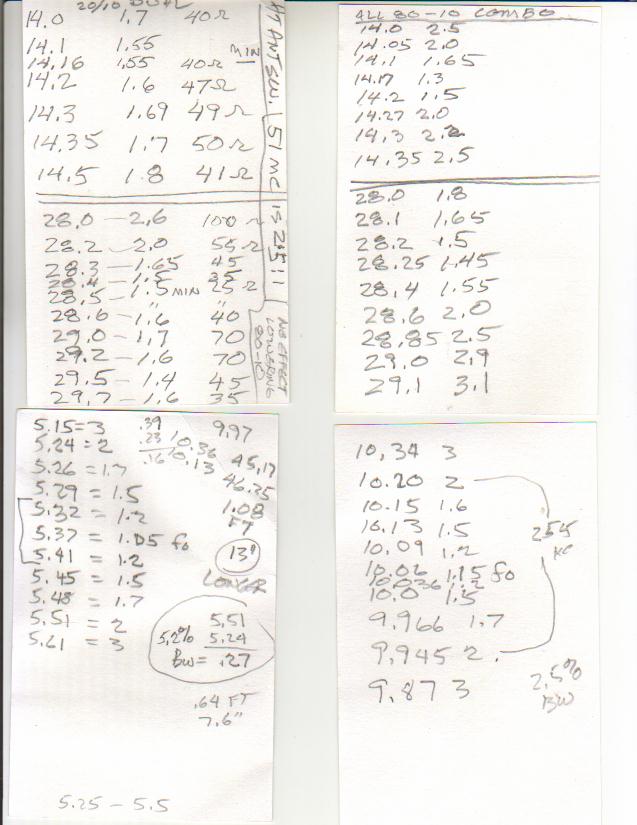 20/10 DUAL
14.0 1.7 40Ω
14.1 1.55
14.16 1.55 40Ω MIN
14.2 1.6 47Ω
14.3 1.69 49Ω
14.35 1.7 50Ω
14.5 1.8 41Ω
28.0 — 2.6 100Ω
28.2 — 2.0 55Ω
28.3 — 1.65 45
28.4 — 1.5 35
28.5 — 1.5 MIN 25Ω
28.6 — 1.6 40
29.0 — 1.7 70
29.2 — 1.6 70
29.5 — 1.4 45
29.7 — 1.6 35
ANT SW. 51 MC IS 2.5!!
NO EFFECT
LOWERING
80-10
ALL 80-10 COMBO
14.0 2.5
14.05 2.0
14.1 1.65
14.17 1.3
14.2 1.5
14.27 2.0
14.3 2.2
14.35 2.5
28.0 1.8
28.1 1.65
28.2 1.5
28.25 1.45
28.4 1.55
28.6 2.0
28.85 2.5
29.0 2.9
29.1 3.1
5.15 = 3
5.24 = 2
5.26 = 1.7
5.29 = 1.5
5.32 = 1.2
5.37 = 1.05 fo
5.41 = 1.2
5.45 = 1.5
5.48 = 1.7
5.51 = 2
5.61 = 3
.39
.23
.16
10.36
10.13
9.97
45.17
46.25
1.08
FT
13"
LONGER
5.51
5.2% 5.24
BW = .27
.64 FT
7.6"
5.25 – 5.5
10.34 3
10.20 2
10.15 1.6
10.13 1.5
10.09 1.2
10.06 1.15 fo
10.036 1.2
10.0 1.5
9.966 1.7
9.945 2.
9.873 3
255
KC
2.5%
BW